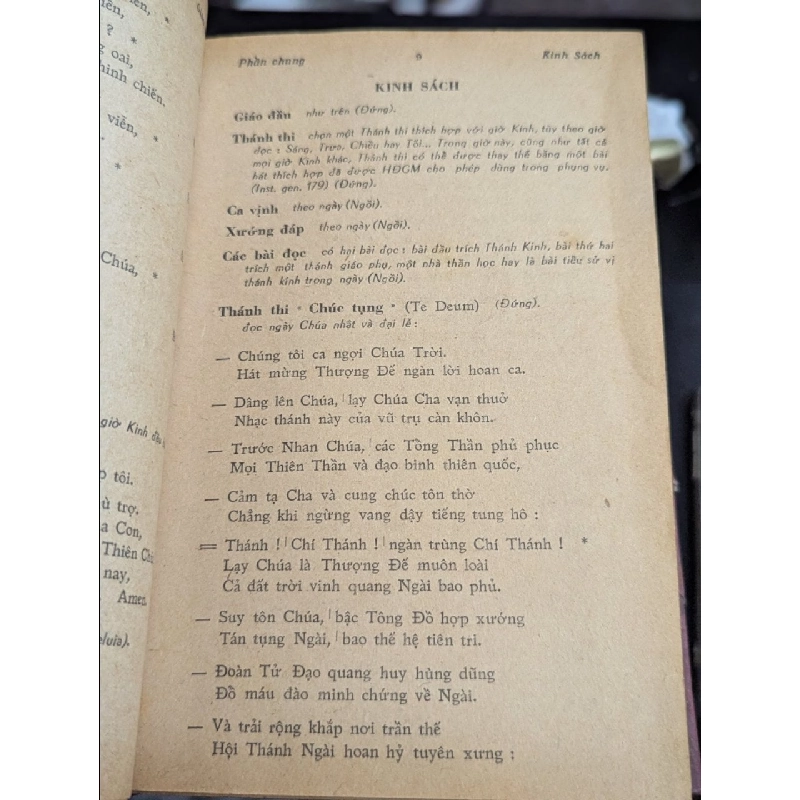 iên,
? *
g oai,
hinh chiến.
viễn, *
*
Chúa, *
giờ Kinh đầu
tôi.
ù trợ.
a Con,
Thiên Ch
nay,
Amen.
eluia).
Phần chung 6 Kinh Sách
KINH SÁCH
Giáo đầu như trên (Đứng).
Thánh thi chọn một Thánh thi thích hợp với giờ Kinh, tùy theo giờ
đọc : Sáng, Trưa, Chiều hay Tối... Trong giờ này, cũng như tất cả
mọi giờ Kinh khác, Thánh thi có thể được thay thế bằng một bài
hát thích hợp đã được HĐGM cho phép dùng trong phụng vụ.
(Inst. gen. 179) (Đứng).
Ca vịnh theo ngày (Ngồi).
Xướng đáp theo ngày (Ngồi).
Các bài đọc có hai bài đọc : bài đầu trích Thánh Kinh, bài thứ hai
trích một thánh giáo phụ, một nhà thần học hay là bài tiểu sử vị
thánh kính trong ngày (Ngồi).
Thánh thi « Chúc tụng » (Te Deum) (Đứng).
đọc ngày Chúa nhật và đại lễ :
— Chúng tôi ca ngợi Chúa Trời.
Hát mừng Thượng Đế ngàn lời hoan ca.
— Dâng lên Chúa, lạy Chúa Cha vạn thuở
Nhạc thánh này của vũ trụ càn khôn.
— Trước Nhan Chúa, các Tổng Thần phủ phục
Mọi Thiên Thần và đạo binh thiên quốc,
— Cảm tạ Cha và cung chúc tôn thờ
Chẳng khi ngừng vang dậy tiếng tung hô :
= Thánh ! Chí Thánh ! ngàn trùng Chí Thánh ! *
Lạy Chúa là Thượng Đế muôn loài
Cả đất trời vinh quang Ngài bao phủ.
— Suy tôn Chúa, bậc Tông Đồ hợp xướng
Tán tụng Ngài, bao thế hệ tiên tri.
— Đoàn Tử Đạo quang huy hùng dũng
Đổ máu đào minh chứng về Ngài.
— Và trải rộng khắp nơi trần thế
Hội Thánh Ngài hoan hỷ tuyên xưng :